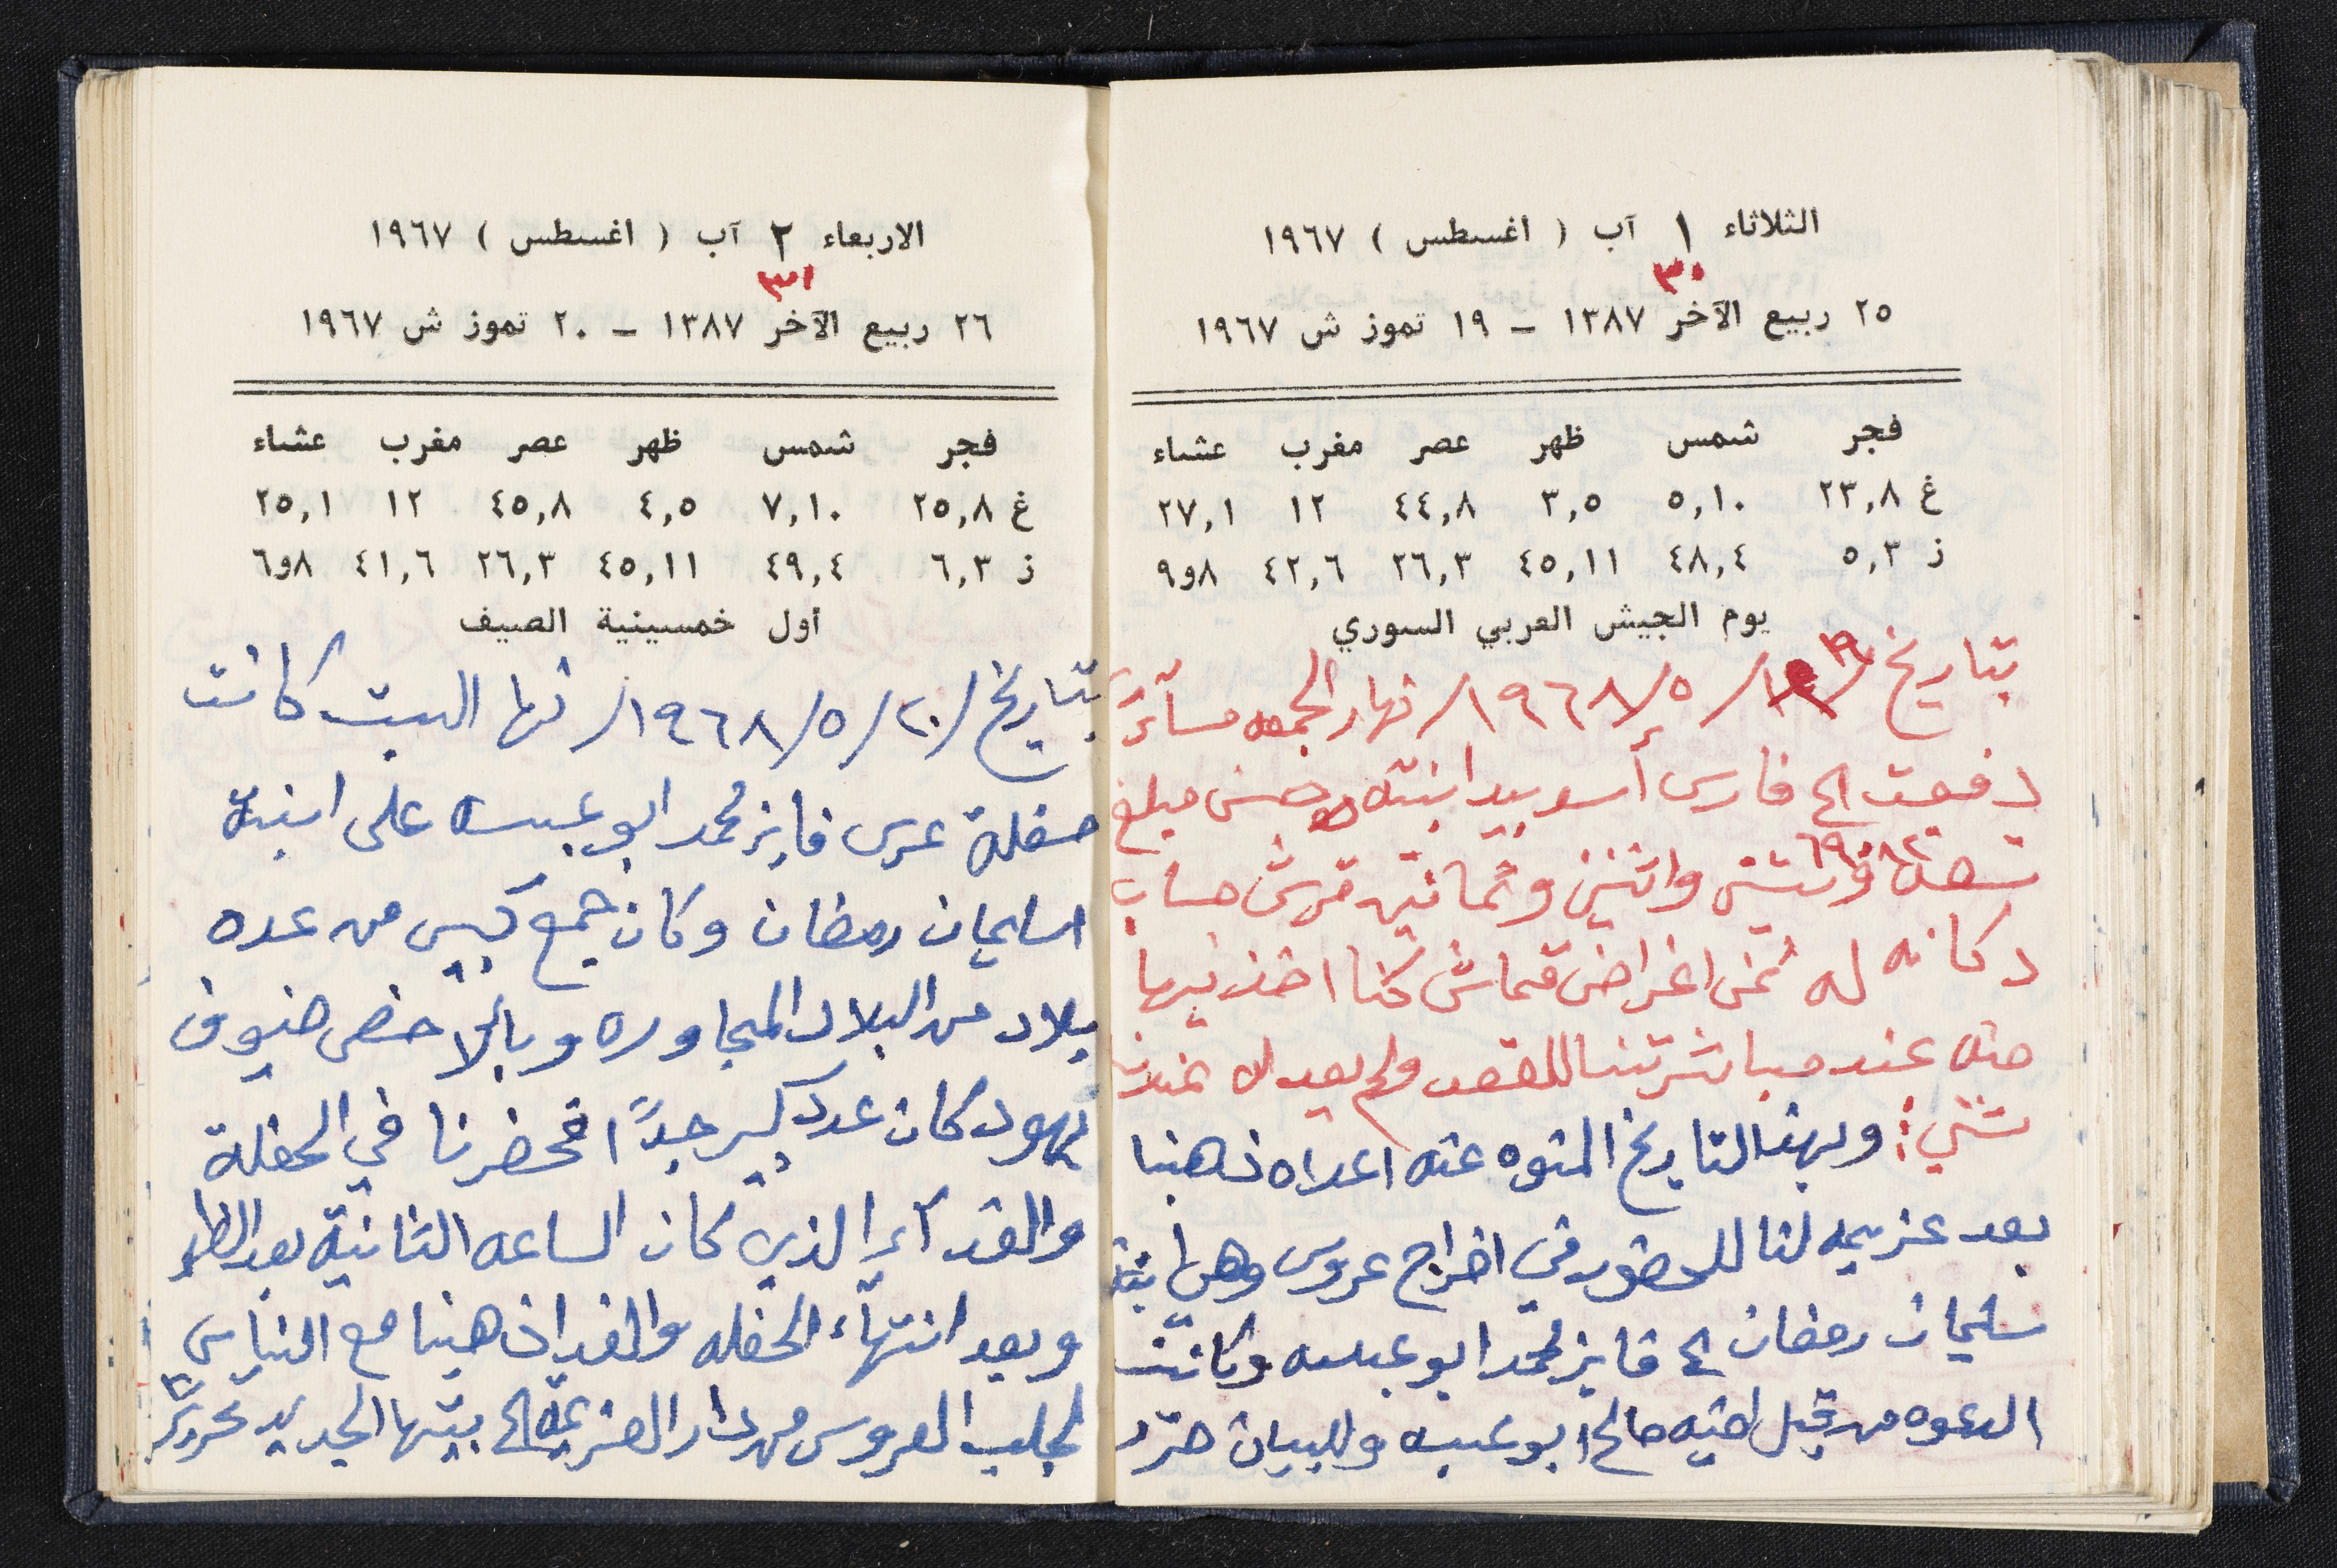 الثلاثاء ١ آب ( اغسطس ) ١٩٦٧
٣٠
٢٥ ربيع الآخر ١٣٨٧ – ١٩ تموز ش ١٩٦٧
فجر شمس ظهر عصر مغرب عشاء
غ ٢٣,٨ ٥,١٠ ٣,٥ ٤٤,٨ ١٢ ٢٧,١
ز ٥,٣ ٤٨,٤ ٤٥,١١ ٢٦,٣ ٤٢,٦ ٨و٩
يوم الجيش العربي السوري
بتاريخ /١٩/ ٥/ ١٩٦٨/ نهار الجمعه مسآءً
دفعت الى فارس أسو بيد ابنته مبلغ
تسعة وستين واثنين وثمانين قرش حساب
دكانه له ثمن اغراض قماش كنا اخذنيها
منه عند مباشرتنا للعقد ولم يعد له عندنا
شيء: وبهذا التاريخ المنوه عنه اعداه ذهبنا
بعد عزيمه لنا للحضور في اخراج عروس وهي ابنة
سليمان رمضان الى فايز محمد ابو عبسه وكانت
الدعوه من قبل اخيه صالح ابو عبسه وللبيان حرّر
الاربعاء ٢ آب ( اغسطس ) ١٩٦٧
٣١
٢٦ ربيع الآخر ١٣٨٧ – ٢٠ تموز ش ١٩٦٧
فجر شمس ظهر عصر مغرب عشاء
غ ٢٥,٨ ٧,١٠ ٤,٥ ٤٥,٨ ١٢ ٢٥,١
ز ٦,٣ ٤٩,٤ ٤٥,١١ ٢٦,٣ ٤١,٦ ٨و٦
أول خمسينية الصيف
بتاريخ /٢٠/ ٥/ ١٩٦٨/ نها السبت كانت
حفلة عرس فايز محمد ابو عبسه على ابنة
اسليمان رمضان وكان جمع كبير من عده
بلاد من البلاد المجاوره وبالاخص ضيوف
يهود كان عدد كبير جداً احضرنا في الحفلة
والغدآء الذي كان الساعه الثانية بعد الظهر
وبعد انتهآء الحفله والغدا ذهبنا مع الناس
لجلب العروس من دار العزيمة الى بيتها الجديد